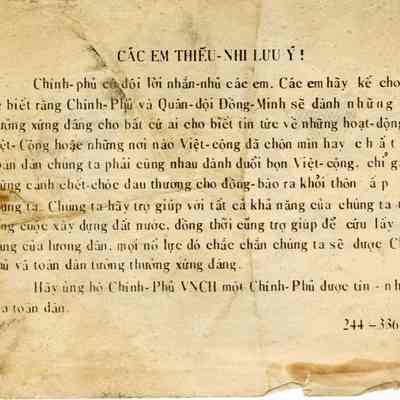 CÁC EM THIẾU-NHI LƯU Ý !
Chính-phủ có đôi lời nhắn-nhủ các em. Các em hãy kể cho
biết rằng Chính-Phủ và Quân-đội Đồng-Minh sẽ dành những
ưởng xứng đáng cho bất cứ ai cho biết tin tức về những hoạt-động
Việt-Cộng hoặc những nơi nào Việt-cộng đã chôn mìn hay chất
oàn dân chúng ta phải cùng nhau đánh đuổi bọn Việt-cộng, chỉ g
ững cảnh chết-chóc đau thương cho đồng-bào ra khỏi thôn ấp
úng ta. Chúng ta hãy trợ giúp với tất cả khả năng của chúng ta t
ng cuộc xây dựng đất nước, đồng thời cũng trợ giúp để cứu lấy
ạng của lương dân, mọi nỗ lực đó chắc chắn chúng ta sẽ được C
ủ và toàn dân tưởng thưởng xứng đáng.
Hãy ủng hộ Chính-Phủ VNCH một Chính-Phủ được tín - nh
a toàn dân.
244 -336